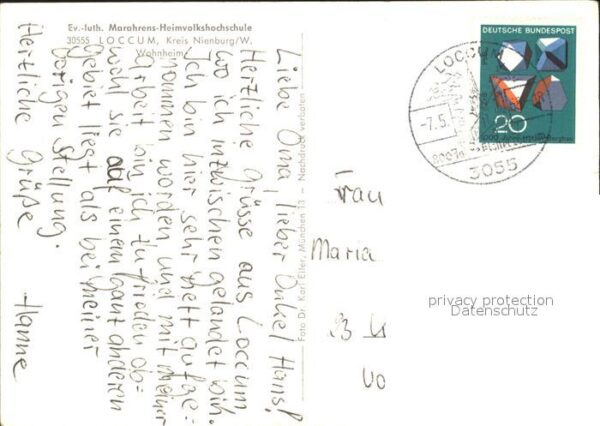 Ev.-luth. Marahrens-Heimvolkshochschule
30555 LOCCUM, Kreis Nienburg/W.
Wohnheim
Liebe Oma, lieber Onkel Hans!
Herzliche Grüsse aus Loccum
wo ich inzwischen gelandet bin.
Ich bin hier sehr nett aufge=
nommen worden und mit meiner
Arbeit bin ich zufrieden ob=
wohl sie auf einem ganz anderen
Gebiet liegt als bei meiner
Stellung.
Herzliche Grüße
Hanne
Foto Dr. Karl Eiler, München 13 — Nachdruck verboten
DEUTSCHE BUNDESPOST
20
LOCCUM
-7.5.
3055
Frau
Maria
privacy protection
Datenschutz